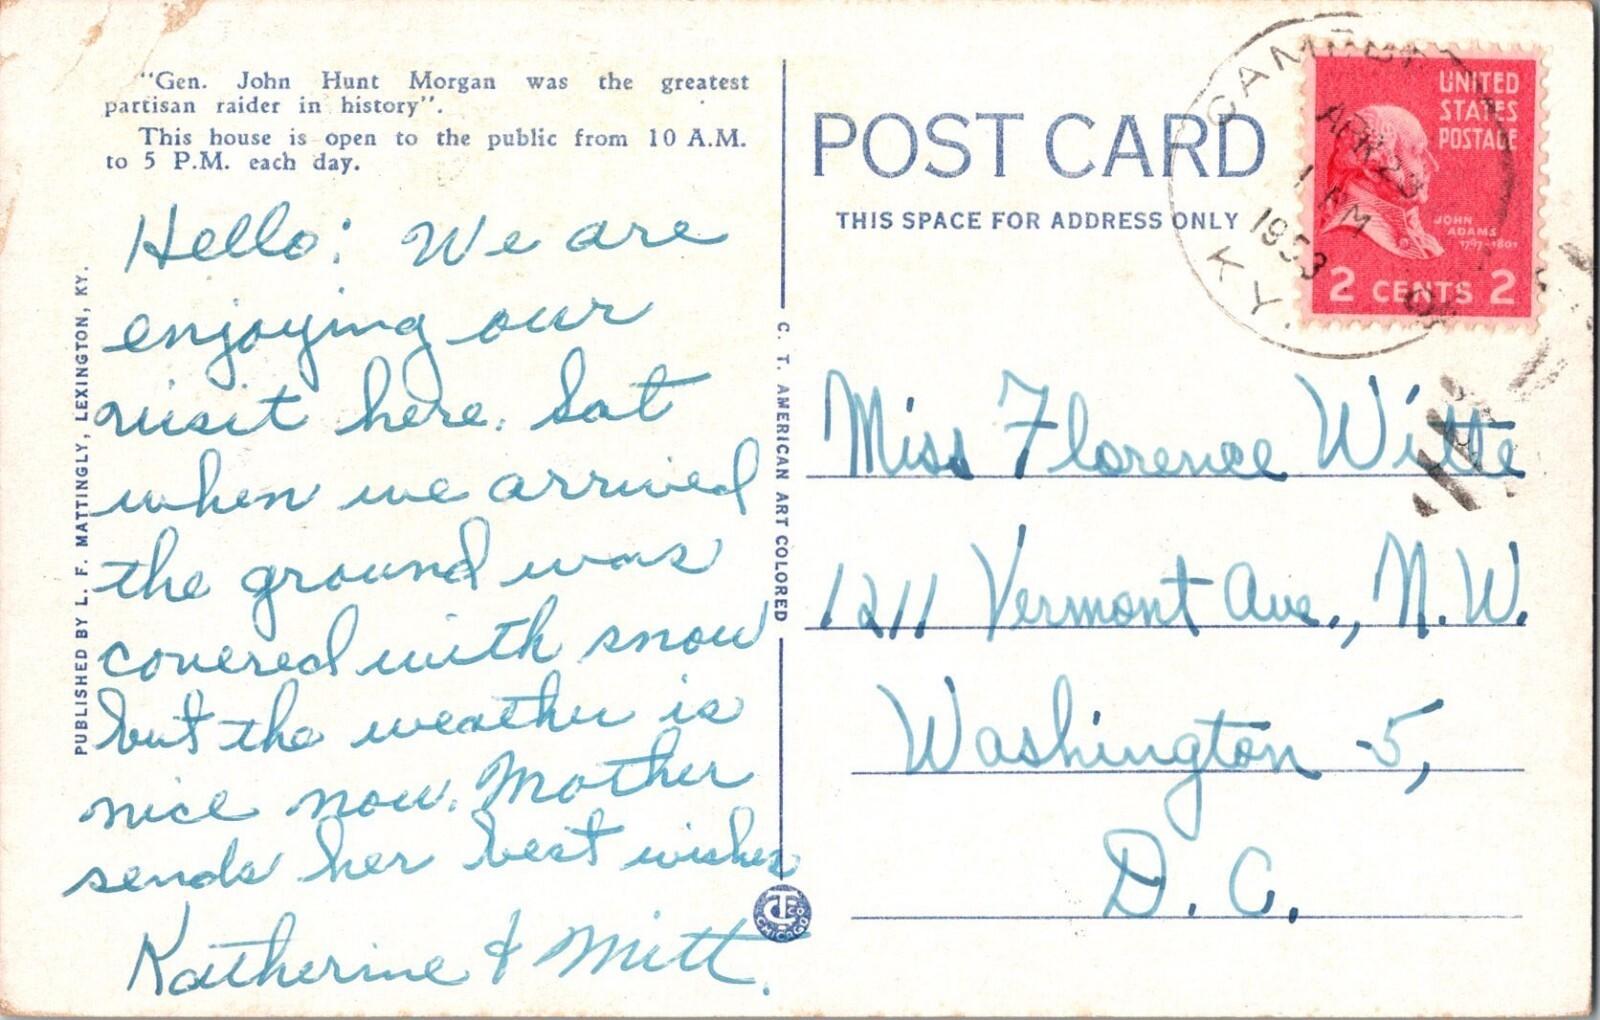 "Gen. John Hunt Morgan was the greatest
partisan raider in history".
This house is open to the public from 10 A.M.
to 5 P.M. each day.
Hello: We are
enjoying our
visit here. Sat
when we arrived
the ground was
covered with snow
but the weather is
nice now. Mother
sends her best wishes
Katherine & Mitt.
PUBLISHED BY L. F. MATTINGLY, LEXINGTON, KY.
C. T. AMERICAN ART COLORED
CT CO
CHICAGO
POST CARD
THIS SPACE FOR ADDRESS ONLY
APR 23
1 AM
1953
KY.
UNITED
STATES
POSTAGE
JOHN
ADAMS
1797-1801
2 CENTS 2
Miss Florence Witte
1211 Vermont Ave., N.W.
Washington 5,
D. C.